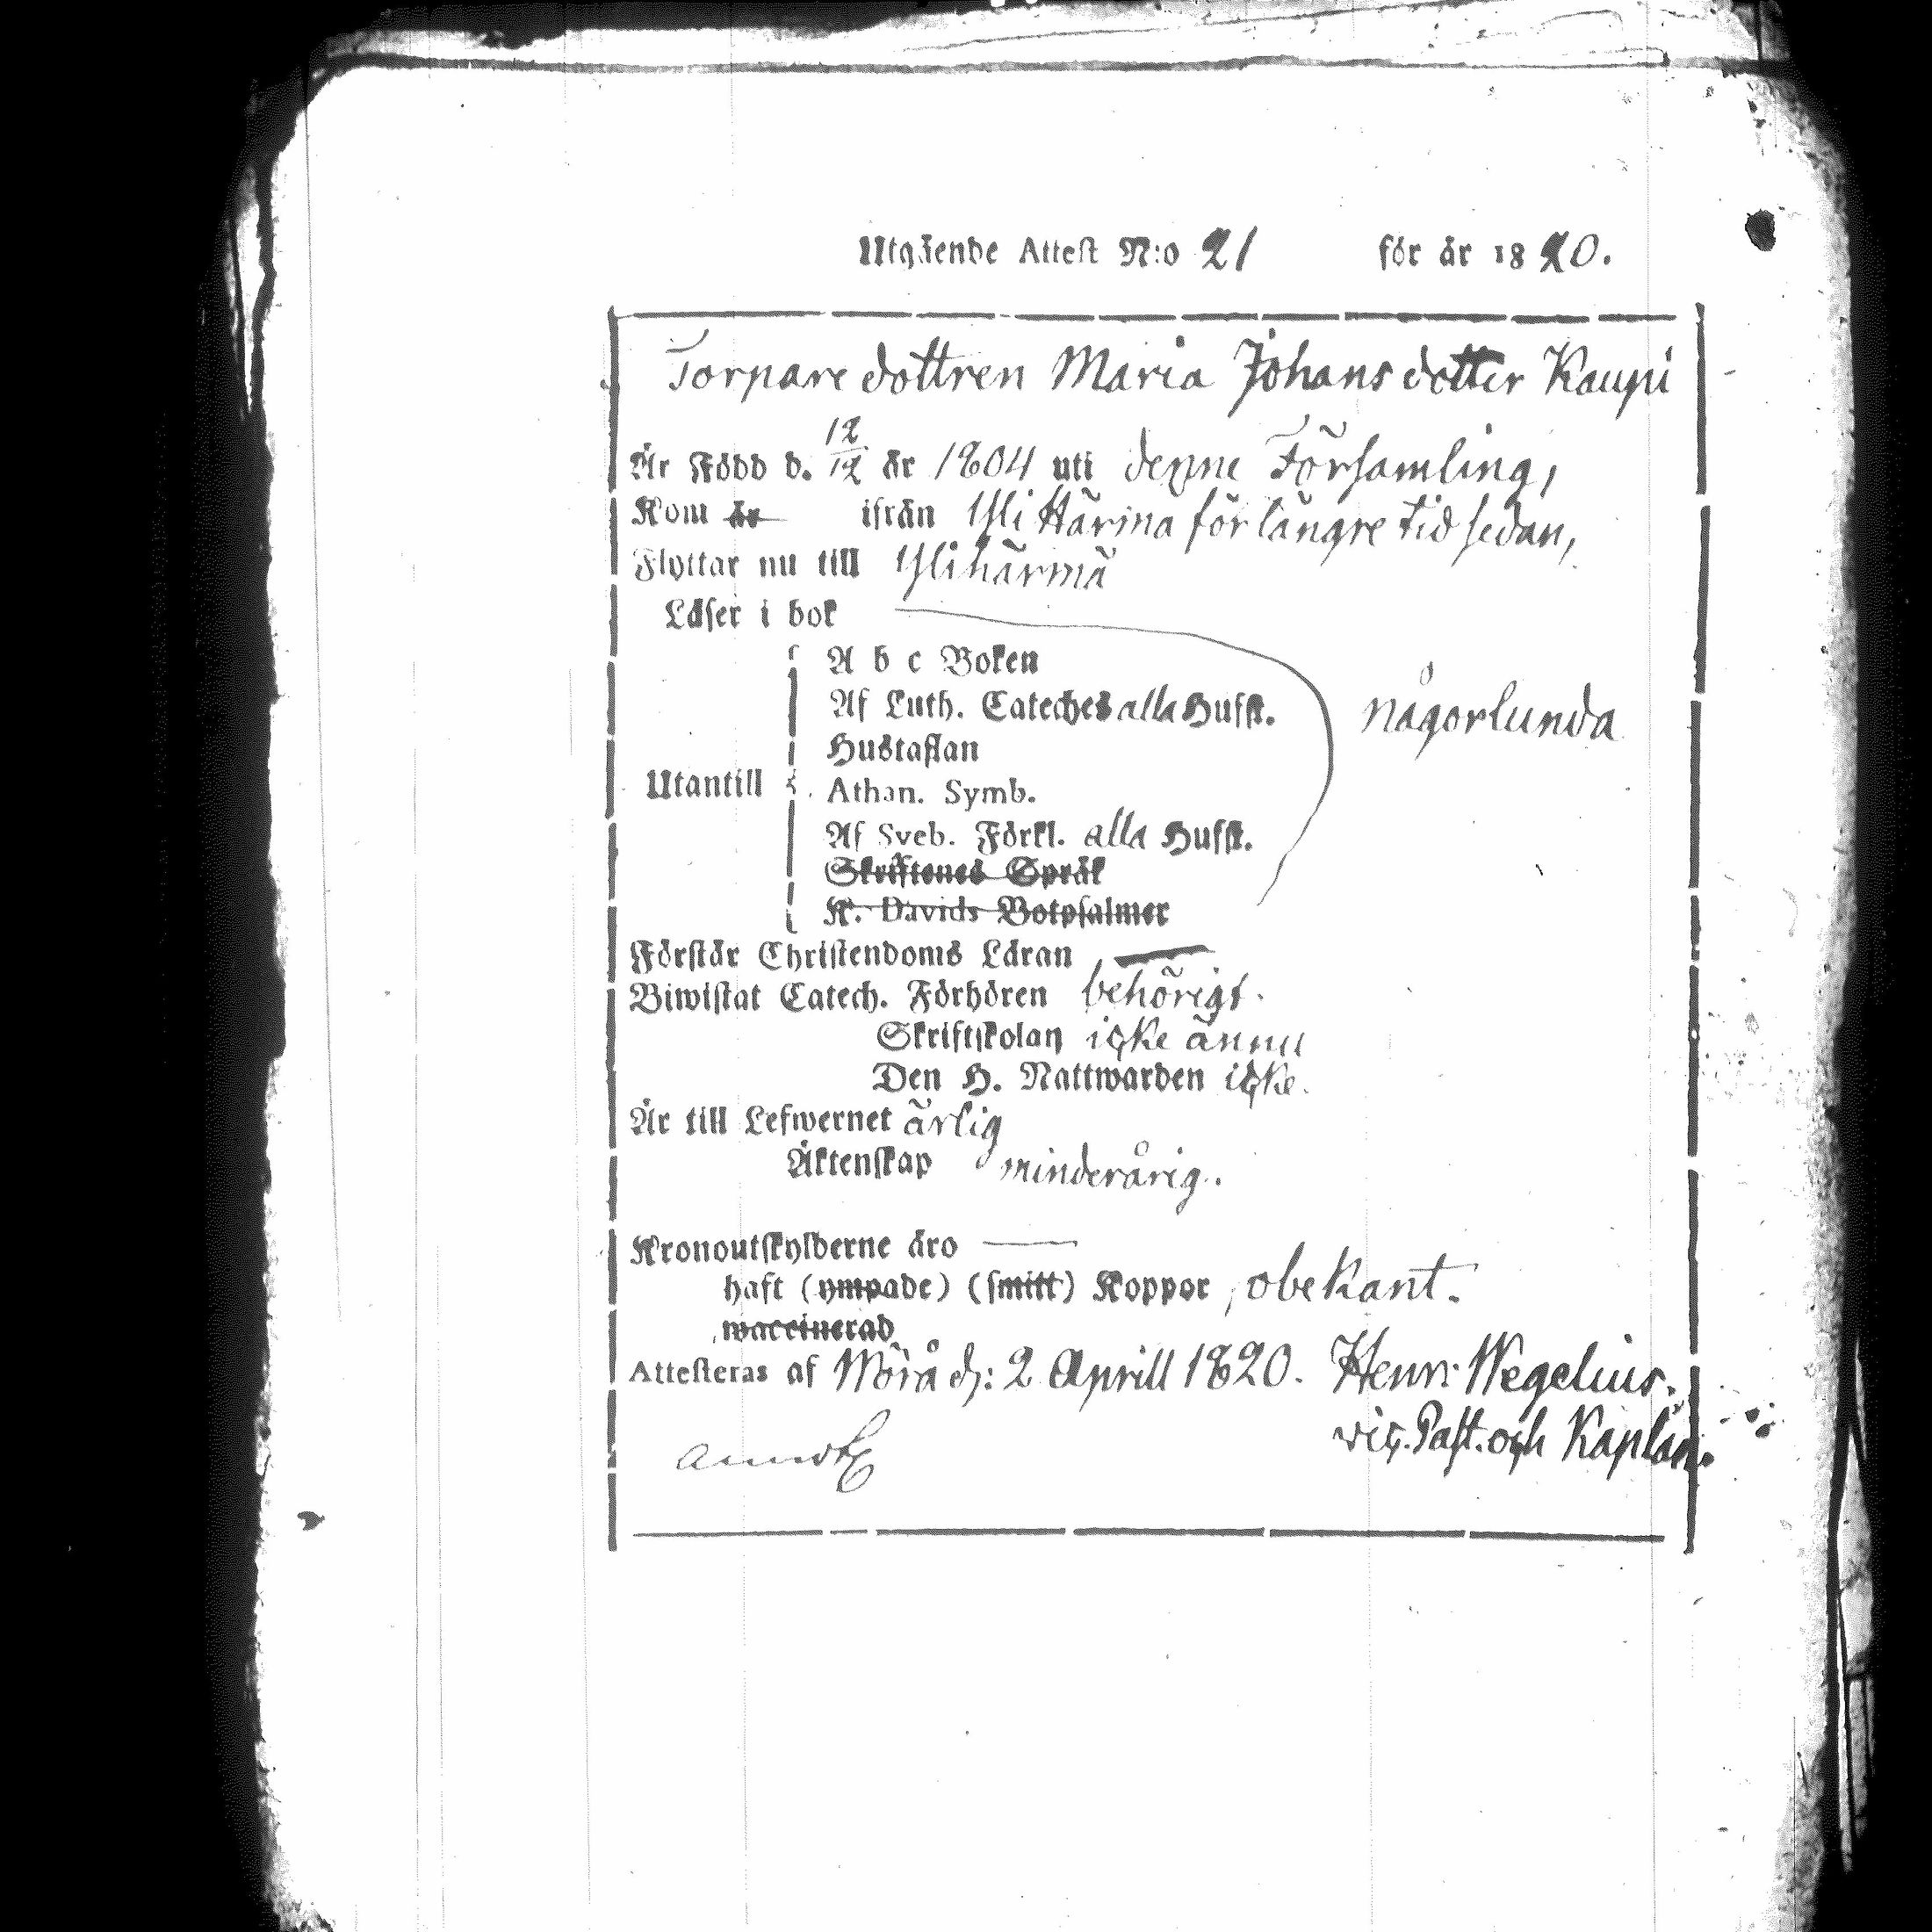 Utgående Attest N:o 21 för år 1820.
Torpare dottren Maria Johans dotter Kaupi
Är Född d. 12/12 år 1804 uti denne Församling,
Kom år ifrån Yli Härma för längre tid sedan,
Flyttar nu till Ylihärmä
Läser i bok
A b c Boken
Af Luth. Cateches alla Hufst.
Hustaflan
någorlunda
Utantill
Athan. Symb.
Af Sveb. Förkl. alla Hufst.
Skriftenes Språk
K. Davids Botpsalmer
Förstår Christendoms Läran —
Biwistat Catech. Förhören behörigt.
Skriftskolan icke ännu
Den H. Nattwarden icke.
Är till Lefwernet ärlig
Äktenskap minderårig.
Kronoutskylderne äro —
haft (ympade) (smitt) Koppor, obekant.
waccinerad
Attesteras af Mörå d: 2 Aprill 1820. Henr: Wegelius.
vic. Past. och Kaplan.